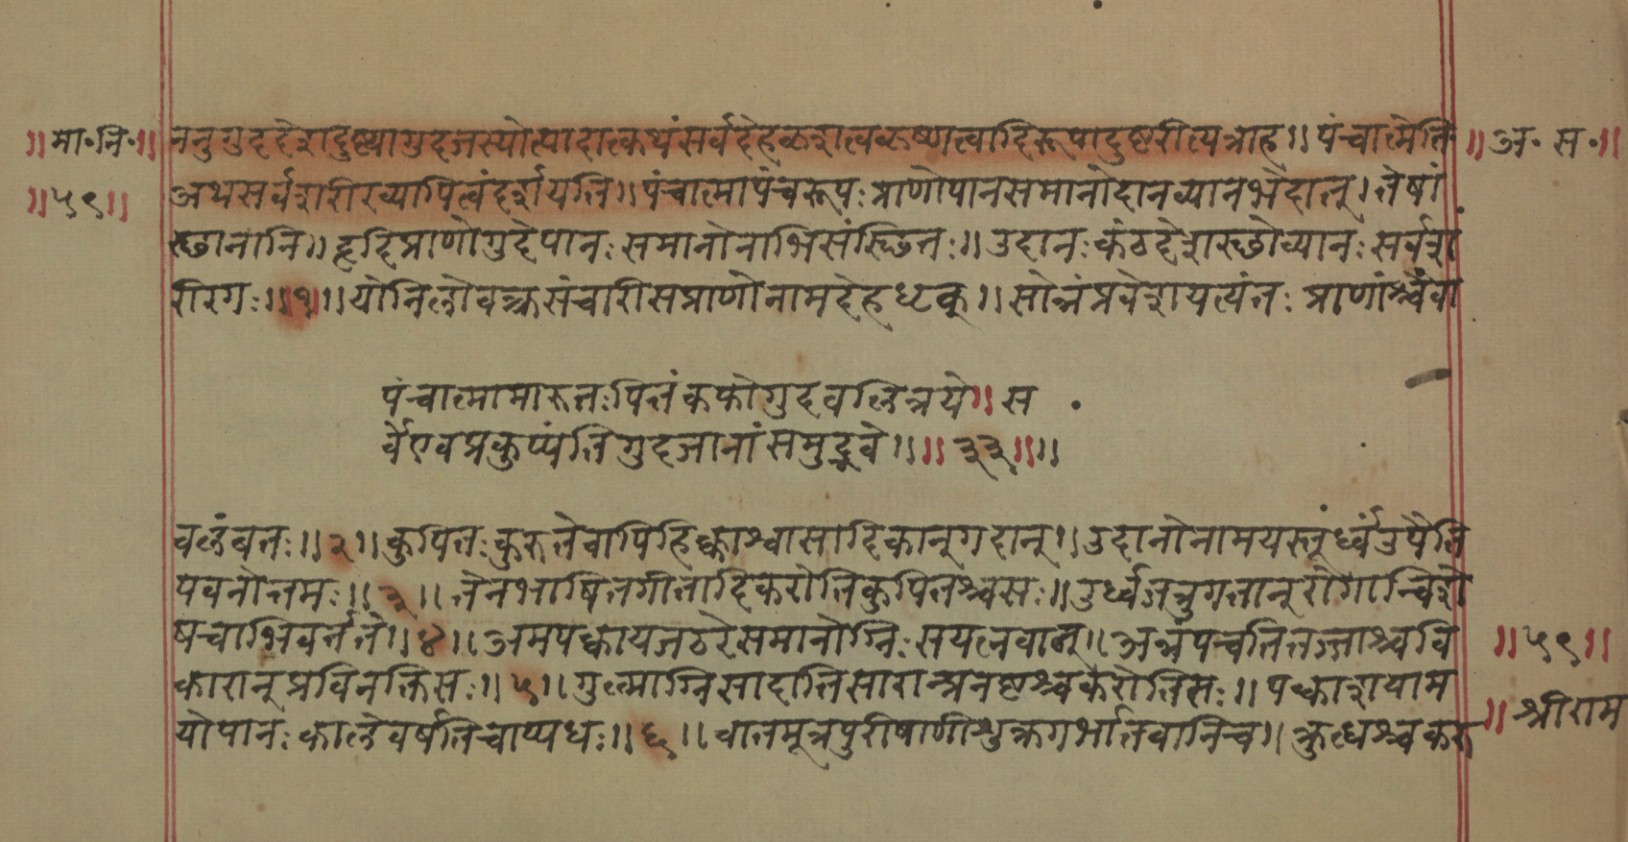 ॥मा॰नि॰॥ ननुगुददेशदुष्ट्यागुदजस्योत्पादात्कथंसर्वदेहकृशत्वकृष्णत्वादिरूपादुष्टरीत्यत्राह॥ पंचात्मेति ॥अ॰ स॰॥
॥५९॥ अथसर्वशरीरव्यापित्वंदर्शयति॥ पंचात्मापंचरूपः प्राणोपानसमानोदानव्यानभेदात्। तेषां
स्छानानि॥ हृदिप्राणोगुदेपानः समानोनाभिसंस्छितः॥ उदानः कंठदेशस्छोव्यानः सर्वशां
रीरगः॥१॥ योनिलोवक्त्रसंचारीसप्राणोनामदेहधृक्॥ सोन्नंप्रवेशयत्यंतः प्राणांश्चैवा
पंचात्मामारुतःपित्तंकफोगुदवलित्रये॥ स
र्वेएवप्रकुप्यंतिगुदजानांसमुद्भवे॥ ॥३३॥॥
वलंबतः॥२॥ कुपितःकुरुतेवापिहिक्काश्वासादिकान्गदान्॥ उदानोनामयस्तूर्ध्वंउपैति
पवनोत्तमः॥३॥ तेनभाषितगीतादिकरोतिकुपितश्चसः॥ उर्ध्वजत्रुगतान्रोगान्विशे
षचाभिवर्त्तते॥४॥ अमपक्वायजठरेसमानोग्निः सयत्नवान्॥ अन्नंपचतितज्जाश्चवि
कारान्प्रविनक्तिसः॥५॥ गुल्माग्निसादातिसारान्प्रनष्टश्चकरोतिसः॥ पक्वाशयाम ॥५९॥
योपानः कालेवर्षतिचाप्यधः॥६॥ वातमूत्रपुरीषाणीशुक्रगर्भार्तवानिच॥ क्रुत्धश्चकरु ॥ श्रीराम